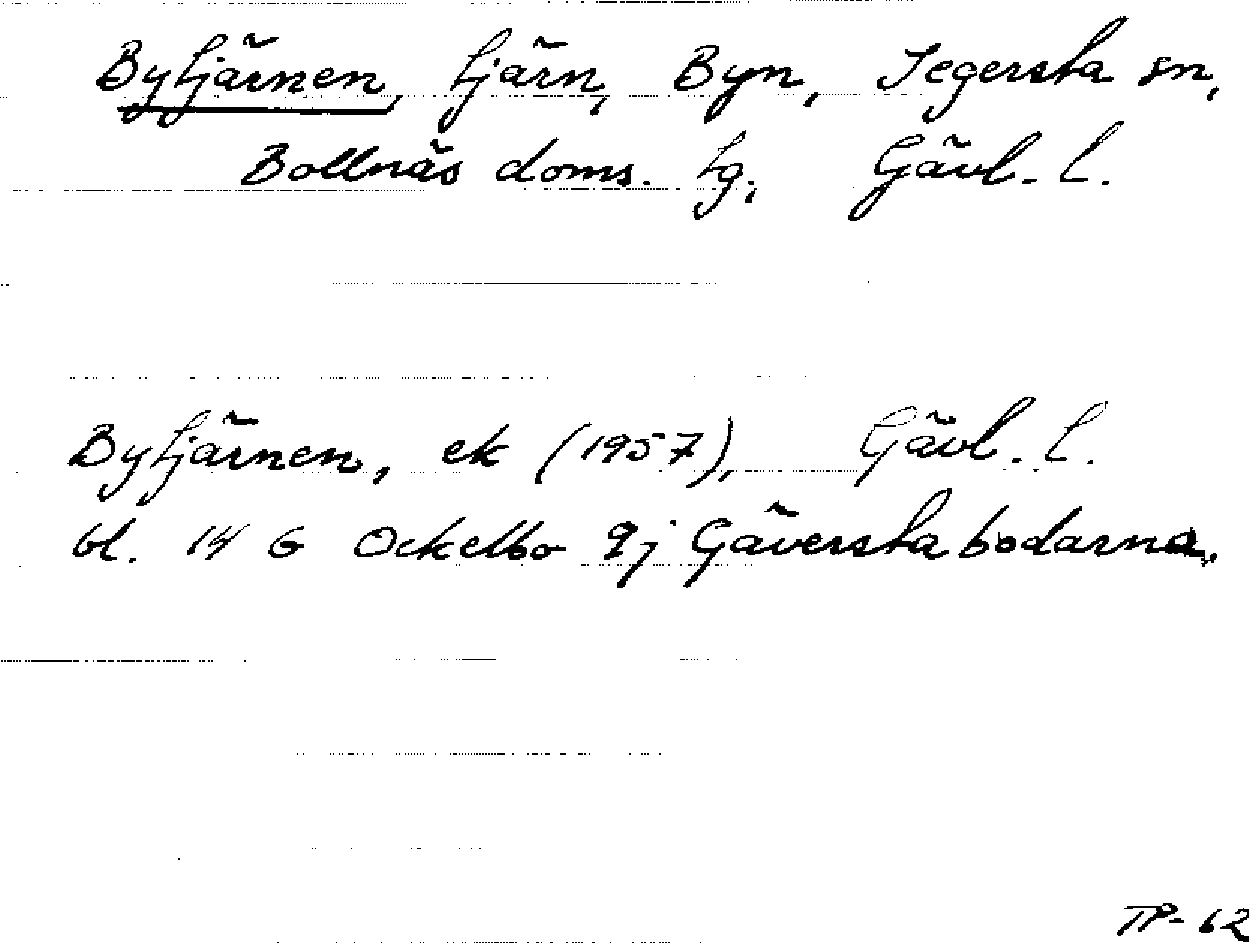 Bytjärnen, tjärn, Byn, Segersta sn,
Bollnäs doms. tg, Gävl. l.
Bytjärnen, ek (1957), Gävl. l.
bl. 14 G Ockelbo 9j Gäverstabodarna.
TP-62